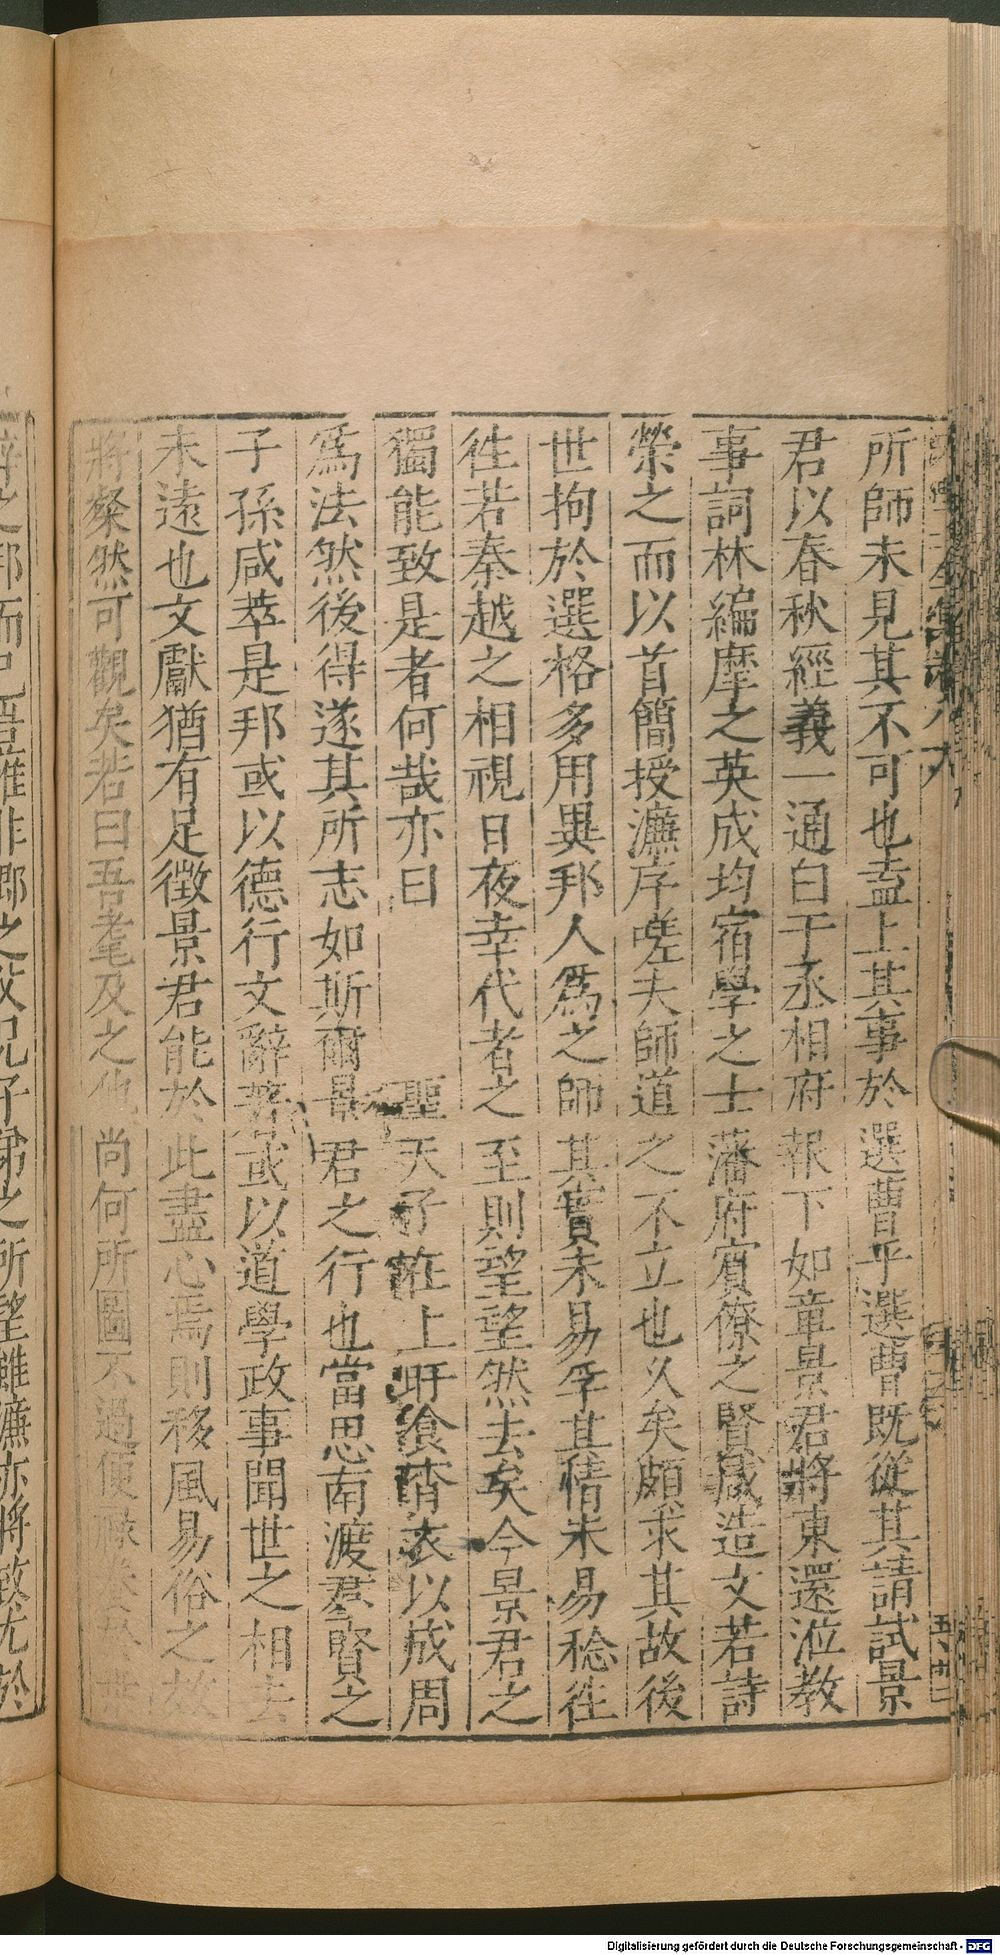 所師未見其不可也盍上其事於選曹乎選曹既從其請試景
君以春秋經義一通白于丞相府報下如章景君將東還涖教
事詞林編摩之英成均宿學之士藩府賓僚之賢咸造文若詩
榮之而以首簡授濂序嗟夫師道之不立也久矣頗求其故後
世拘於選格多用異邦人為之師其實未易孚其情未易稔徃
徃若秦越之相視日夜幸代者之至則望望然去矣今景君之
獨能致是者何哉亦曰聖天子在上旰飡宵衣以成周
為法然後得遂其所志如斯爾景君之行也當思南渡羣賢之
子孫咸萃是邦或以德行文辭著或以道學政事聞世之相去
未遠也文獻猶有足徴景君能於此盡心焉則移風易俗之
將粲然可觀矣若曰吾耄及之他尚何所圖不過便
辭之邦而已吾雖非鄉之父兄子弟之所望雖濂亦將致尤於
五十二
Digitalisierung gefördert durch die Deutsche Forschungsgemeinschaft - DFG